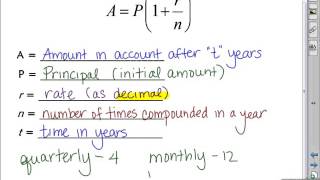 A = P(1 + r/n)
A = Amount in account after "t" years
P = Principal (initial amount)
r = rate (as decimal)
n = number of times compounded in a year
t = time in years
quarterly - 4 monthly - 12